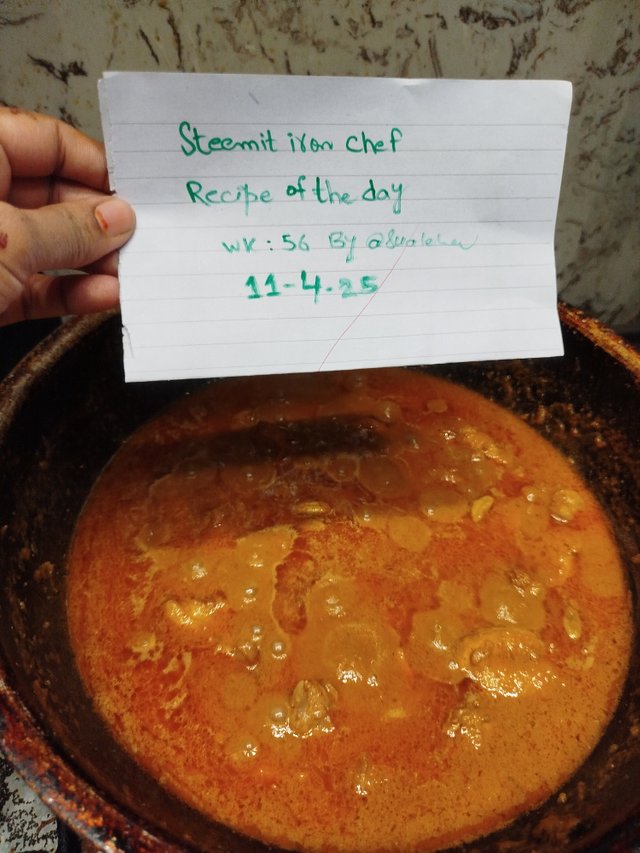 Steemit iron chef
Recipe of the day
WK : 56 By
11-4.25